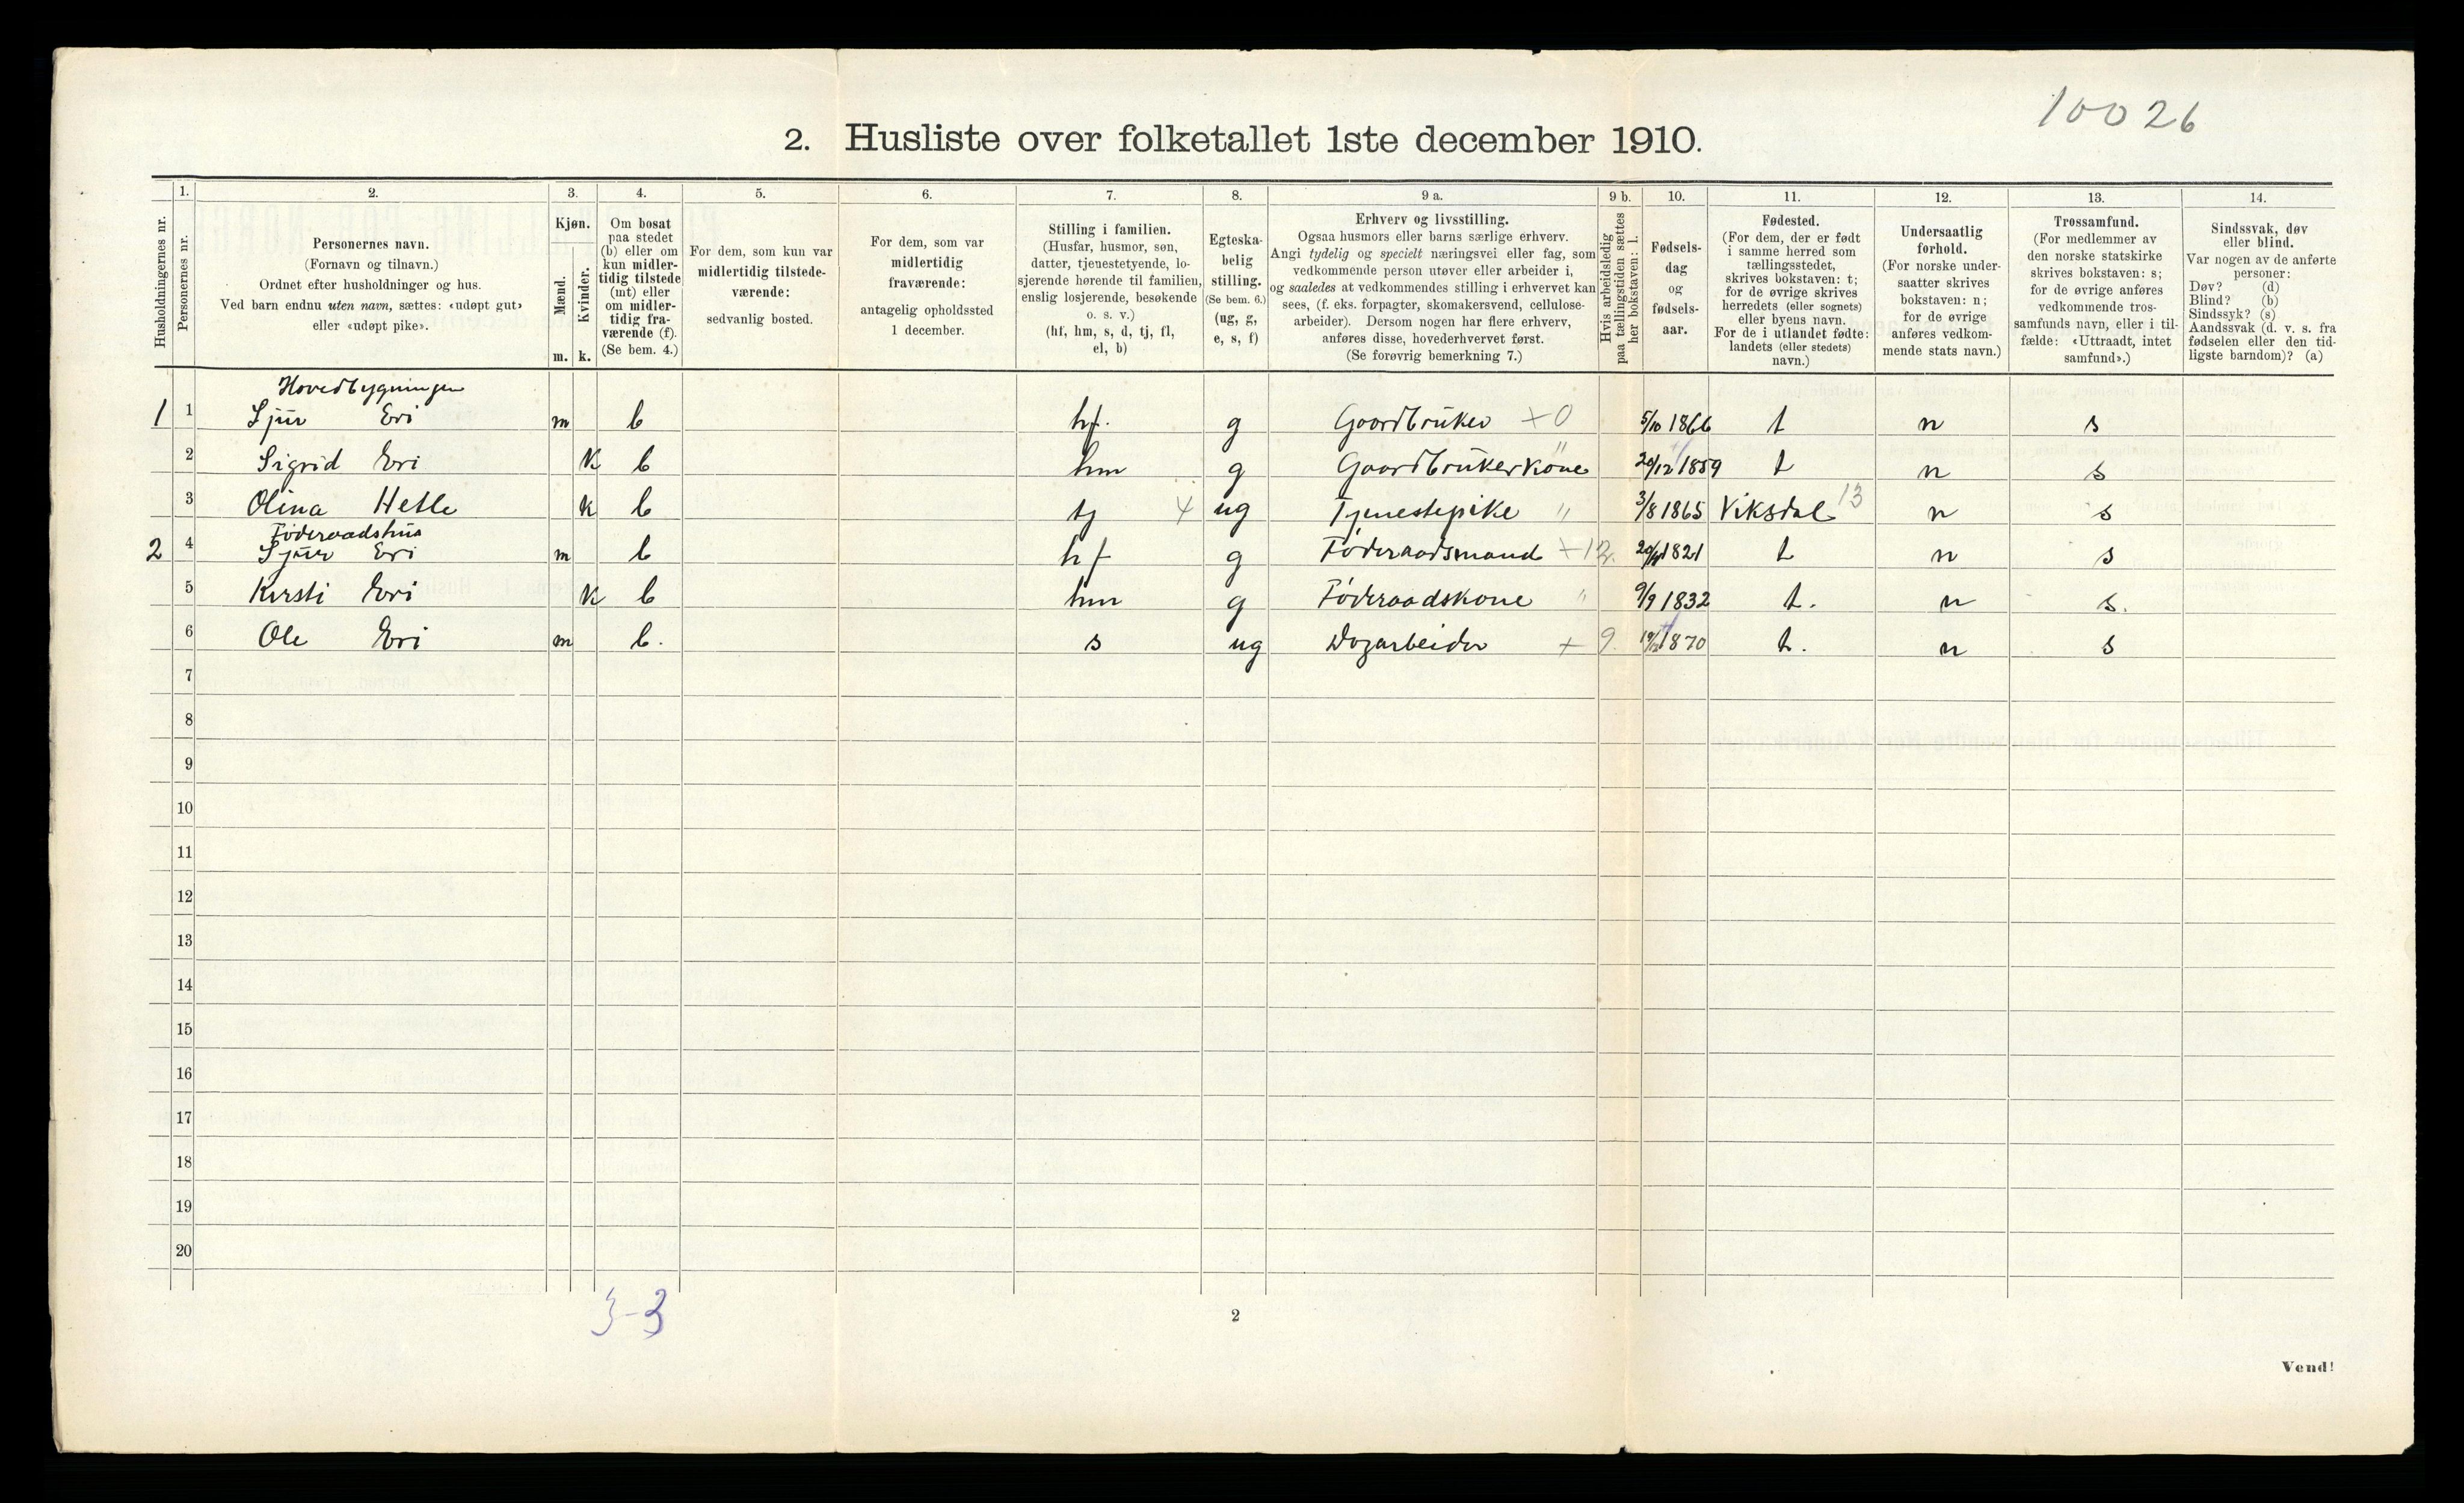 10026
2. Husliste over folketallet 1ste december 1910.
Husholdningernes nr.
1.
Personernes nr.
2.
Personernes navn.
(Fornavn og tilnavn.)
Ordnet efter husholdninger og hus.
Ved barn endnu uten navn, sættes: «udøpt gut»
eller «udøpt pike».
3.
Kjøn.
Mænd.
Kvinder.
m. k.
4.
Om bosat
paa stedet
(b) eller om
kun midler-
tidig tilstede
(mt) eller
om midler-
tidig fra-
værende (f).
(Se bem. 4.)
5.
For dem, som kun var
midlertidig tilstede-
værende:
sedvanlig bosted.
6.
For dem, som var
midlertidig
fraværende:
antagelig opholdssted
1 december.
7.
Stilling i familien.
(Husfar, husmor, søn,
datter, tjenestetyende, lo-
sjerende hørende til familien,
enslig losjerende, besøkende
o. s. v.)
(hf, hm, s, d, tj, fl,
el, b)
8.
Egteska-
belig
stilling.
(Se bem. 6.)
(ug, g,
e, s, f)
9 a.
Erhverv og livsstilling.
Ogsaa husmors eller barns særlige erhverv.
Angi tydelig og specielt næringsvei eller fag, som
vedkommende person utøver eller arbeider i,
og saaledes at vedkommendes stilling i erhvervet kan
sees, (f. eks. forpagter, skomakersvend, cellulose-
arbeider). Dersom nogen har flere erhverv,
anføres disse, hovederhvervet først.
(Se forøvrig bemerkning 7.)
9 b.
Hvis arbeidsledig
paa tællingstiden sættes
her bokstaven: l.
10.
Fødsels-
dag
og
fødsels-
aar.
11.
Fødested.
(For dem, der er født
i samme herred som
tællingsstedet,
skrives bokstaven: t;
for de øvrige skrives
herredets (eller sognets)
eller byens navn.
For de i utlandet fødte:
landets (eller stedets)
navn.)
12.
Undersaatlig
forhold.
(For norske under-
saatter skrives
bokstaven: n;
for de øvrige
anføres vedkom-
mende stats navn.)
13.
Trossamfund.
(For medlemmer av
den norske statskirke
skrives bokstaven: s;
for de øvrige anføres
vedkommende tros-
samfunds navn, eller i til-
fælde: «Uttraadt, intet
samfund».)
14.
Sindssvak, døv
eller blind.
Var nogen av de anførte
personer:
Døv? (d)
Blind? (b)
Sindssyk? (s)
Aandssvak (d. v. s. fra
fødselen eller den tid-
ligste barndom)? (a)
Hovedbygningen
1 1 Sjur Eri m b hf. g Gaardbruker + 0 5/10 1866 t n s
2 Sigrid Eri k b hm g Gaardbrukerkone " 20/12 1859 t n s
3 Olina Hetle k b tj 4 ug Tjenestepike " 3/8 1865 Viksdal 13 n s
Föderaadshus
2 4 Sjur Eri m b hf g Föderaadsmand + 12. 1821 t n s
5 Kersti Eri k b hm g Föderaadskone " 9/9 1832 t. n s.
6 Ole Eri m b. s ug Dagarbeider + 9. 1870 t. n s
7
8
9
10
11
12
13
14
15
16
17
18
19
20
3-3
2
Vend!